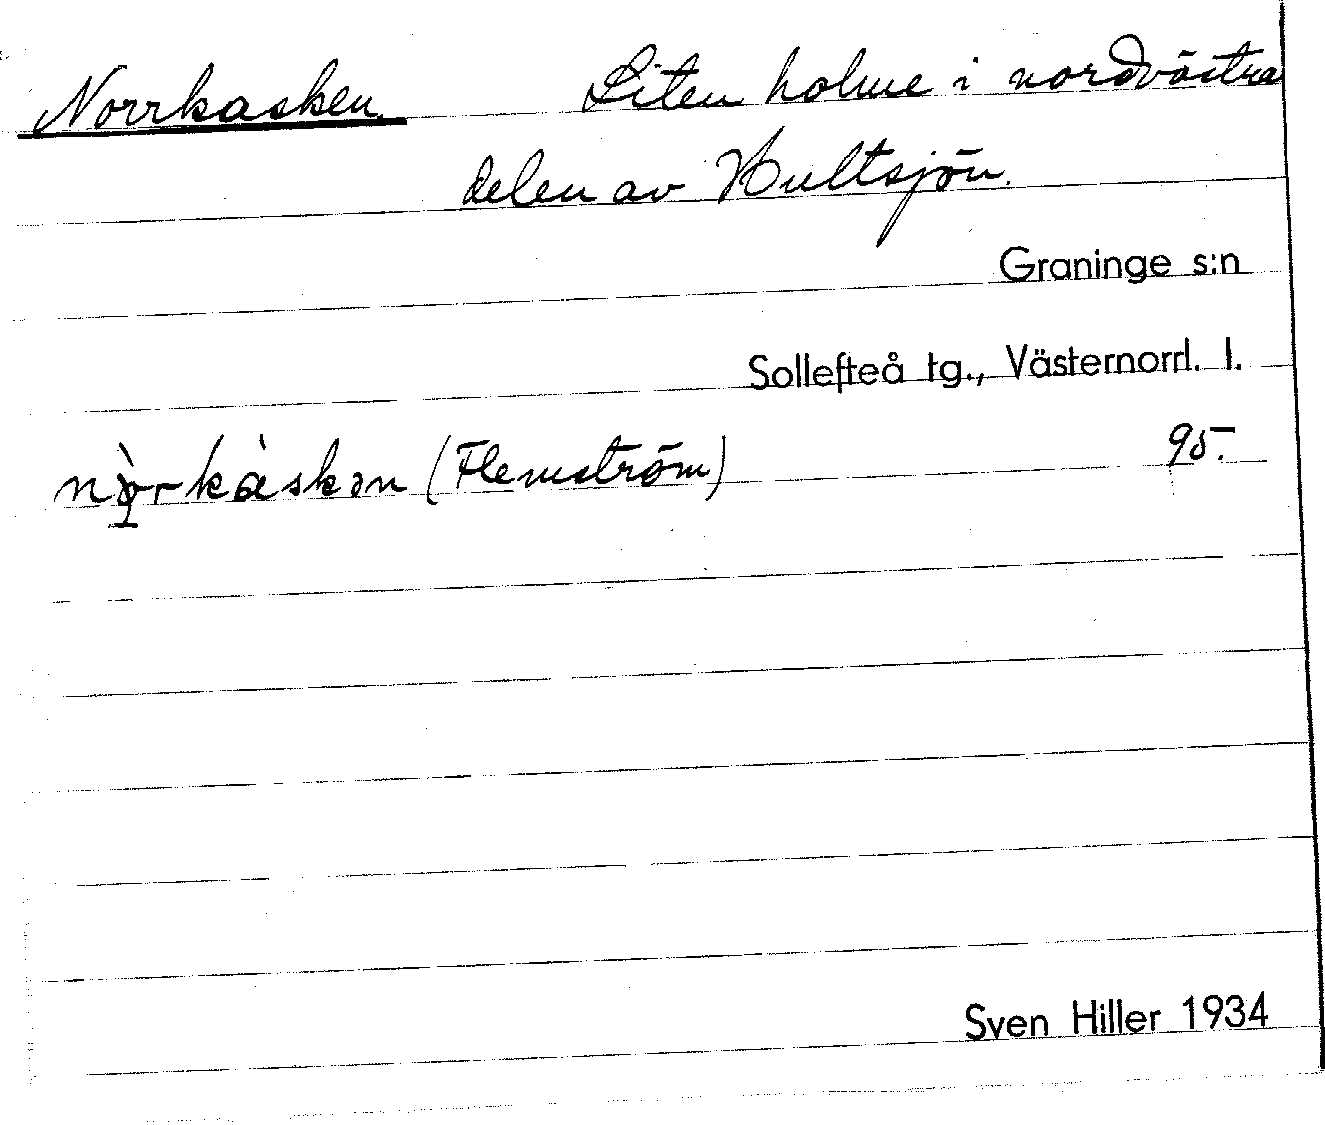 Norrkasken Liten holme i nordvästra
delen av Hultsjön.
Graninge s:n
Sollefteå tg., Västernorrl. l.
(Flemström) 95.
Sven Hiller 1934